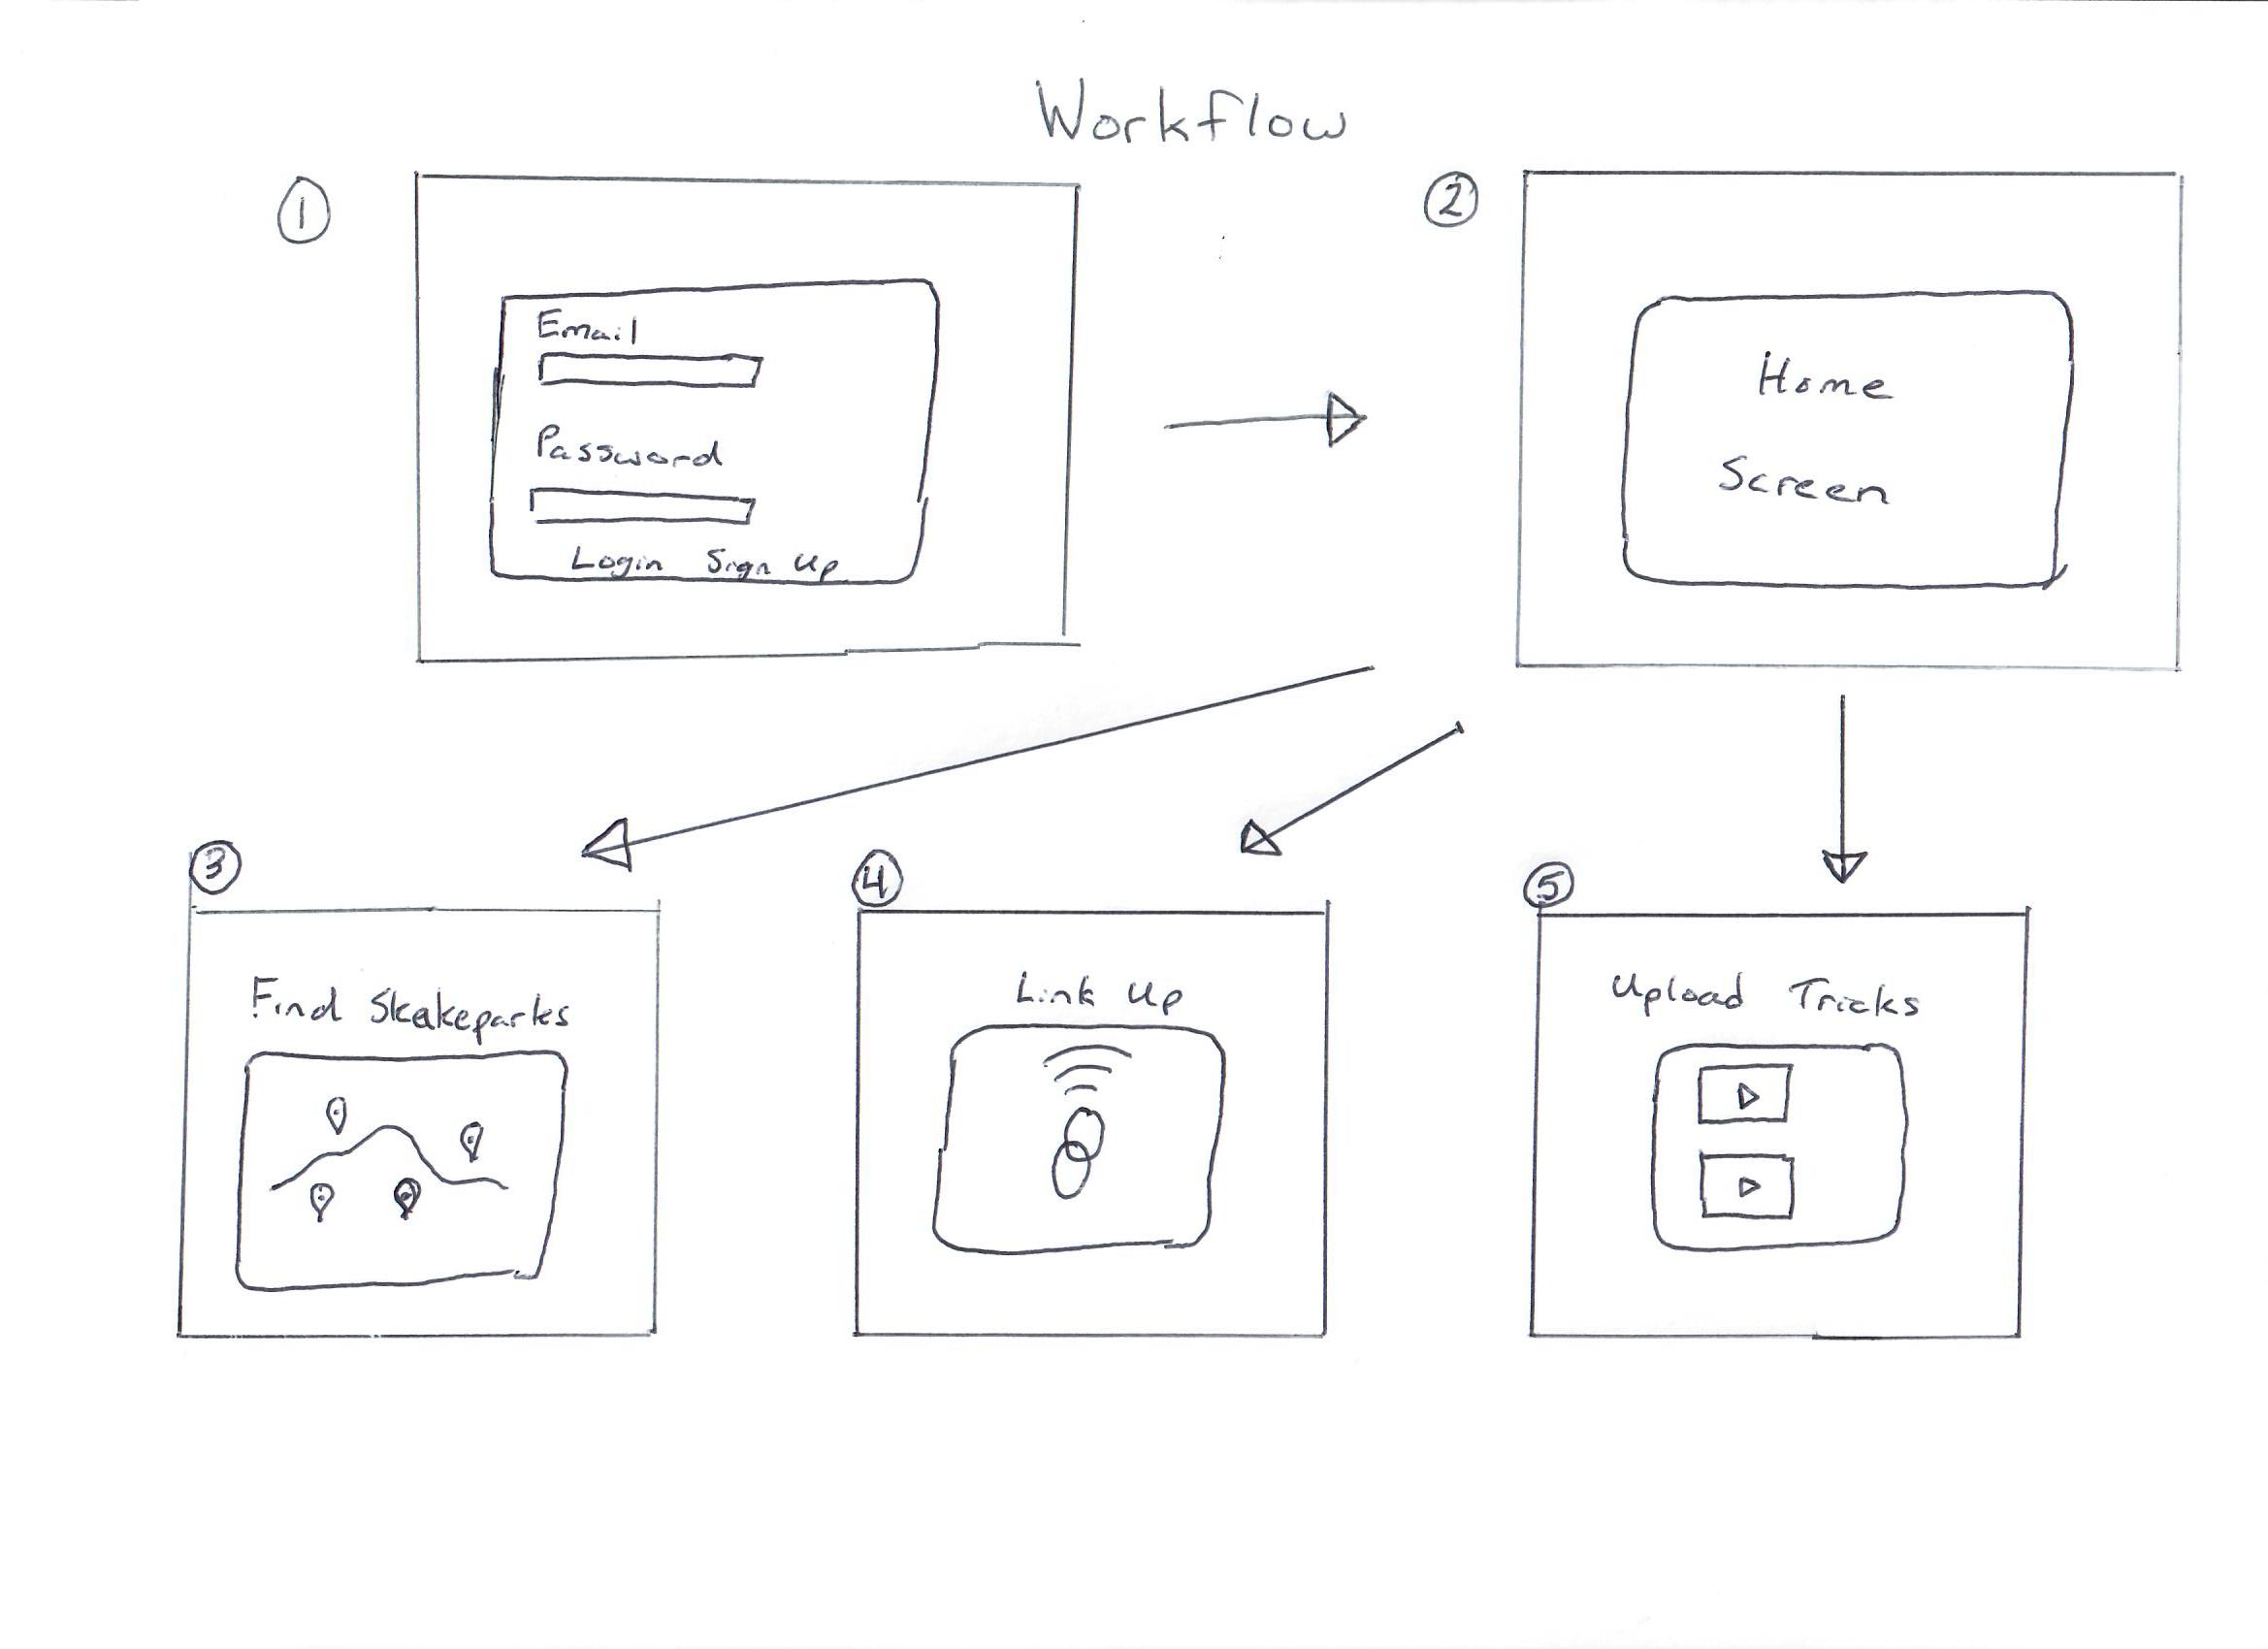 Workflow
1
2
Email
Password
Login Sign Up
Home
Screen
3
4
5
Find Skakeparks
Link Up
Upload Tricks